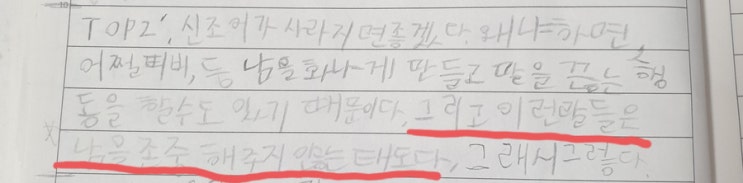 TOP2', 신조어가 사라지면좋겠다. 왜냐하면,
어쩔티비, 등 남을화나게 만들고 말을 끊는 행
동을 할수도 있기 때문이다. 그리고 이런말들은
남을존중 해주지 않는태도다, 그래서그렇다.